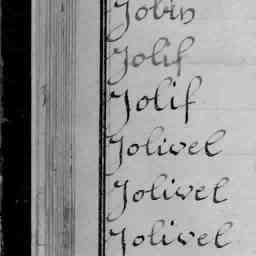 Jobin
Jolif
Jolif
Jolivel
Jolivel
Jolivel